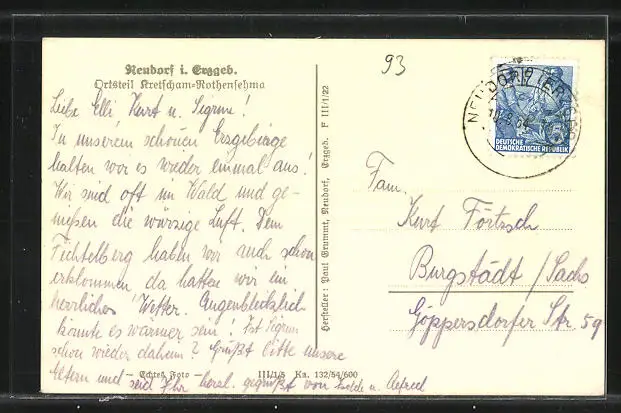 93
Neudorf i. Erzgeb.
Ortsteil Kretscham-Rothensehma
Liebe Elli Kurt u. Sigrun!
In unserem schönen Erzgebirge
halten wir es wieder einmal aus!
Wir sind oft im Wald und ge-
nießen die würzige Luft. Den
Fichtelberg haben wir auch schon
erklommen da hatten wir ein
herrliches Wetter. Augenblicklich
könnte es wärmer sein! Ist Sigrun
schon wieder daheim? Grüßt bitte unsere
Eltern und seid Ihr herzl. gegrüßt von u. Alfred
— Echtes Foto — III/1/5 Ka. 132/54/600
Hersteller: Paul Grummt, Neudorf, Erzgeb. F III/1/22
NEUDORF (ERZ
DEUTSCHE
DEMOKRATISCHE REPUBLIK
Fam.
Kurt Förtzsch
Burgstädt / Sachs
Göppersdorfer Str. 59